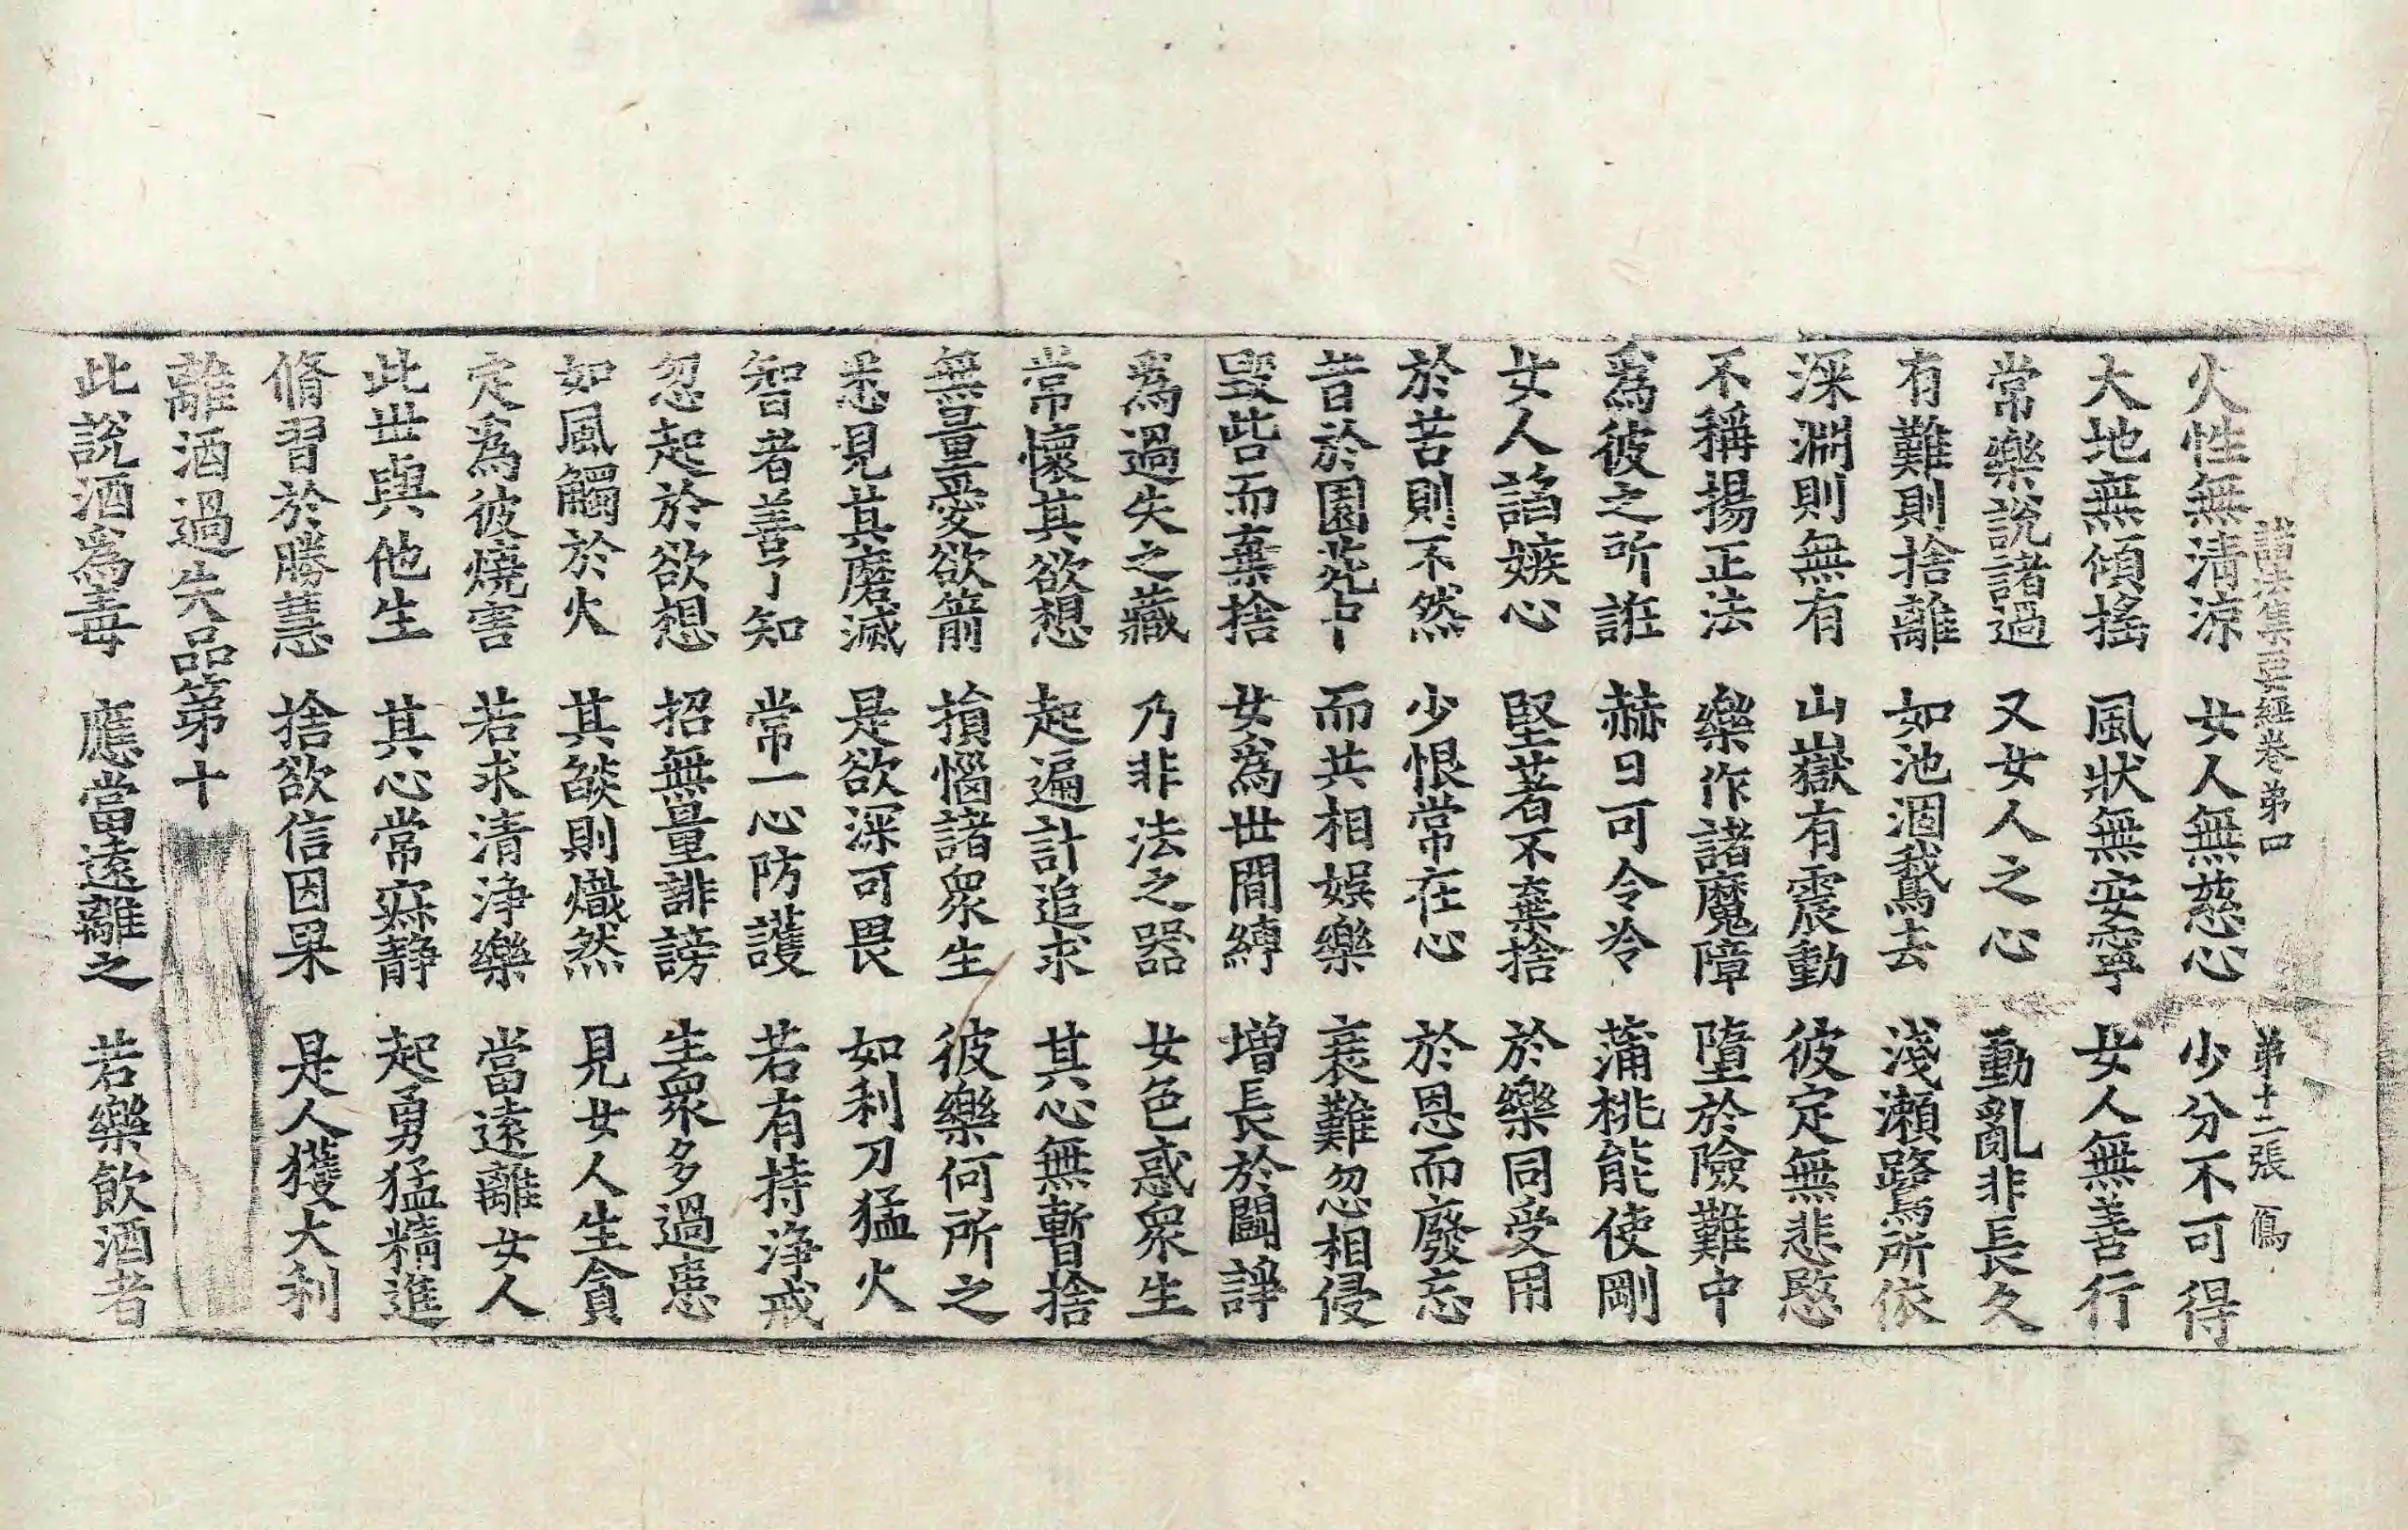 諸法集要經卷第四 第十二張 鴈
火性無清涼 女人無慈心 少分不可得
大地無傾搖 風狀無安寧 女人無善行
常樂說諸過 又女人之心 動亂非長久
有難則捨離 如池涸鵞去 淺瀨鷺所依
深淵則無有 山嶽有震動 彼定無悲愍
不稱揚正法 樂作諸魔障 墮於險難中
爲彼之所誑 赫日可令冷 蒲桃能使剛
女人諂嫉心 堅著不棄捨 於樂同受用
於苦則不然 少恨常在心 於恩而廢忘
昔於園苑中 而共相娛樂 衰難忽相侵
毀呰而棄捨 女爲世間縛 增長於鬪諍
爲過失之藏 乃非法之器 女色惑衆生
常懷其欲想 起遍計追求 其心無暫捨
無量愛欲箭 損惱諸衆生 彼樂何所之
悉見其磨滅 是欲深可畏 如利刀猛火
智者善了知 常一心防護 若有持淨戒
忽起於欲想 招無量誹謗 生衆多過患
如風觸於火 其燄則熾然 見女人生貪
定爲彼燒害 若求清淨樂 當遠離女人
此世與他生 其心常寂靜 起勇猛精進
脩習於勝慧 捨欲信因果 是人獲大利
離酒過失品第十
此說酒爲毒 應當遠離之 若樂飲酒者